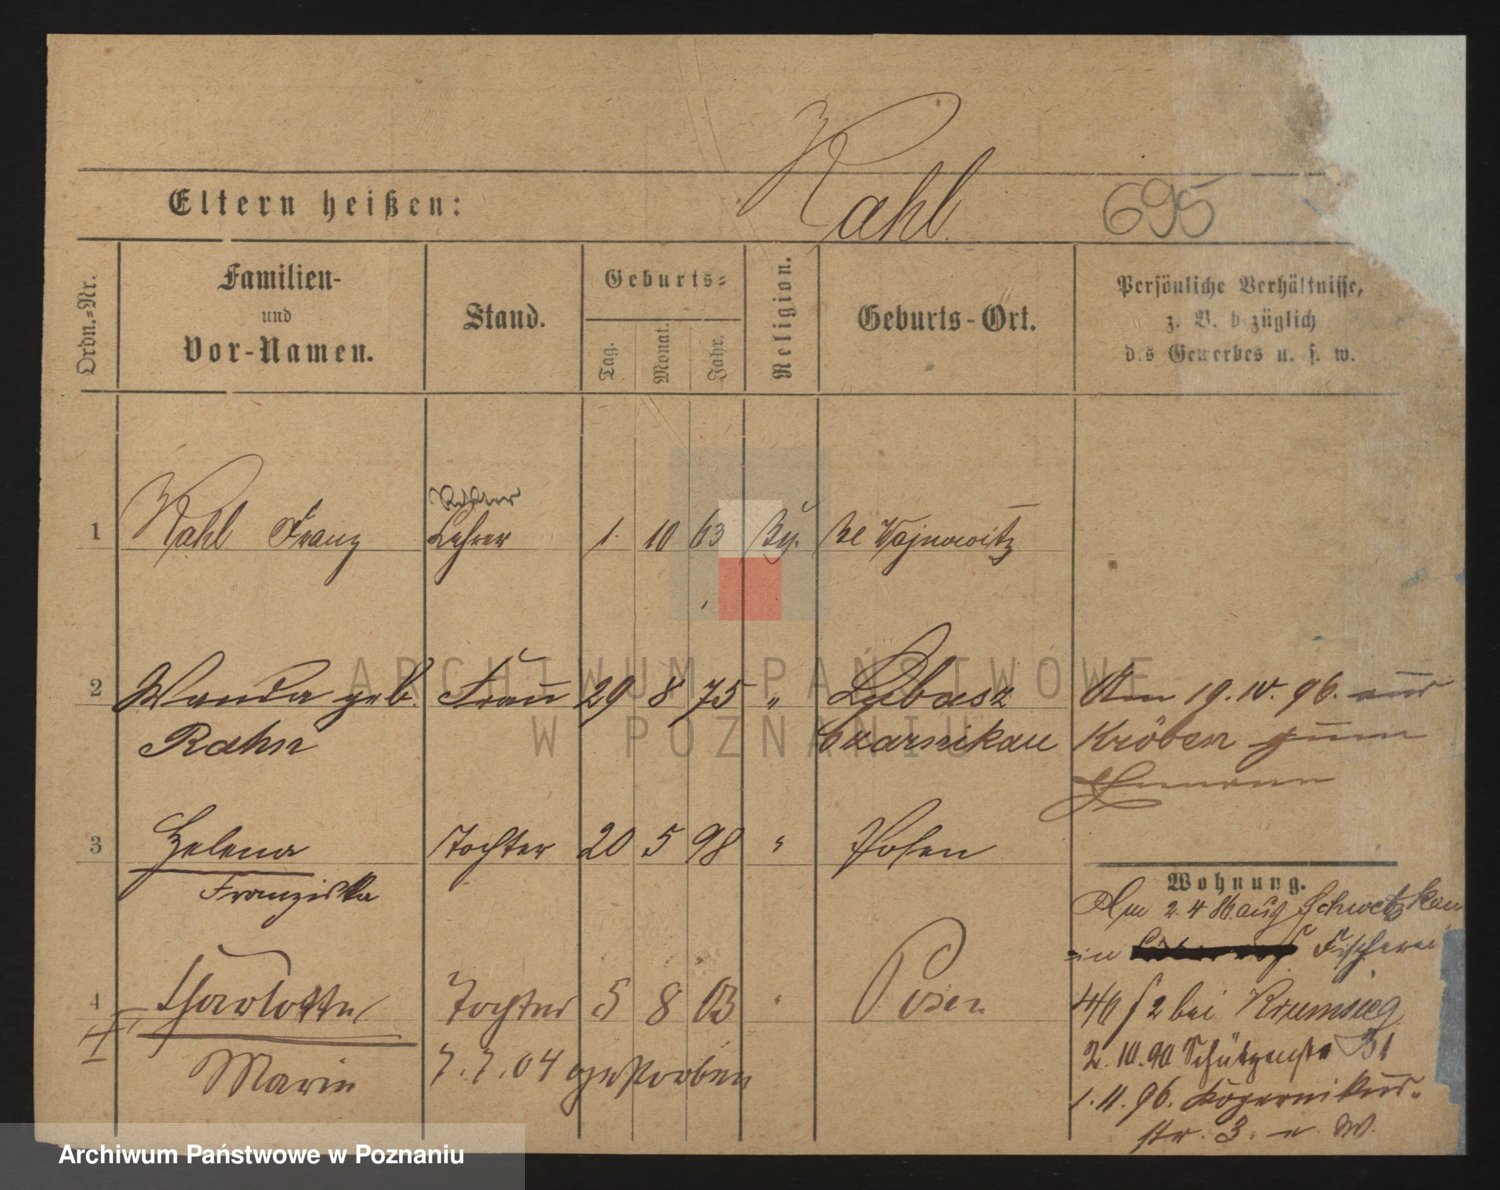 Kahl
695
Eltern heißen:
Ordn.-Nr.
Familien-
und
Vor-Namen.
Stand.
Geburts-
Tag.
Monat.
Jahr.
Religion.
Geburts-Ort.
Persönliche Verhältnisse,
z. B. bezüglich
des Gewerbes u. s. w.
1 Kahl Franz Lehrer 1. 10 63
2 Wanda geb. Frau 29 8 75 " Lubasz Am 19. IV. 96. aus
Rahn Czarnikau Kröben zum
Ehemann
3 Helena Tochter 20 5 98 " Posen
Franziska
Wohnung.
Am 2. 4 86 aus
in
4 Charlotte Tochter 5 8 03 " Posen
46 f 2 bei Krumsieg
Marie 7.7.04 gestorben
2. 10. 90 Schützenstr 31
1. 4. 96. Kopernikus-
str. 3.
ARCHIWUM PAŃSTWOWE
W POZNANIU
Archiwum Państwowe w Poznaniu